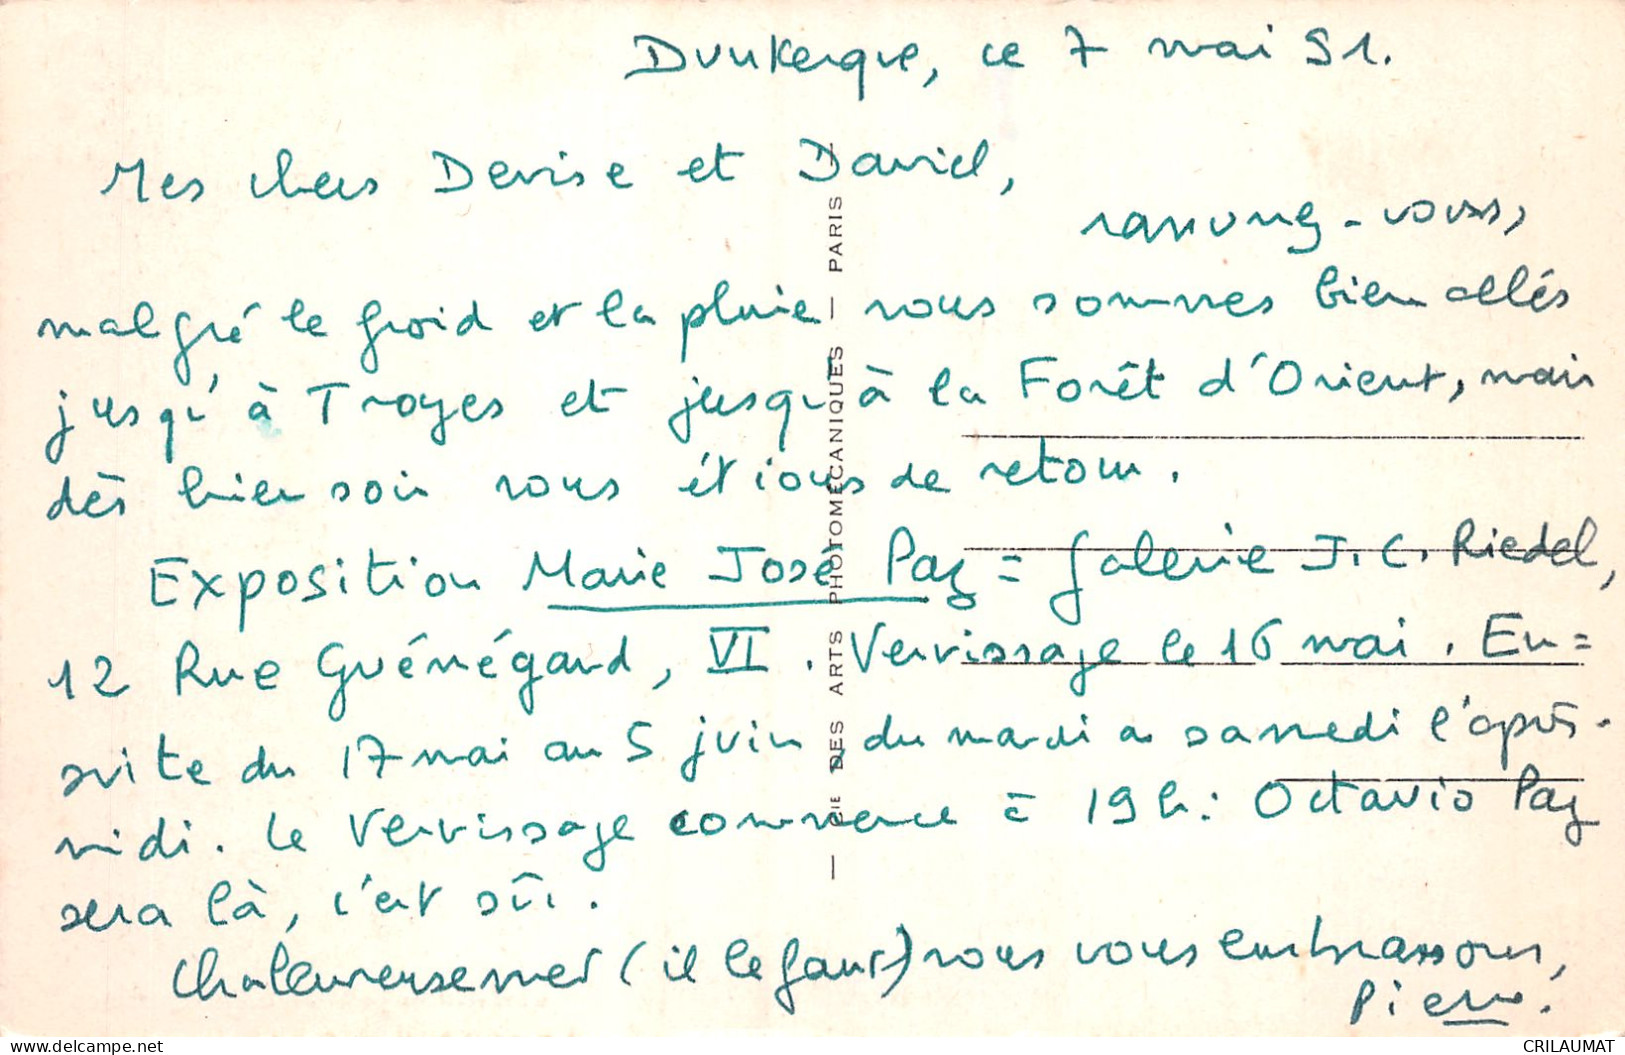 Dunkerque, ce 7 mai 91.
Mes chers Denise et David,
rassurez-vous,
malgré le froid et la pluie nous sommes bien allés
jusqu'à Troyes et jusqu'à la Forêt d'Orient, mais
dès hier soir nous étions de retour.
Exposition Marie José Paz = Galerie J. C. Riedel,
12 Rue Guénégaud, VI. Vernissage le 16 mai. En=
suite du 17 mai au 5 juin, du mardi au samedi l'après-
midi. Le vernissage commence à 19 h: Octavio Paz
sera là, c'est sûr.
Chaleureusement (il le faut) nous vous embrassons,
Pierre.
— CIE DES ARTS PHOTOMECANIQUES — PARIS —
CRILAUMAT
delcampe.net